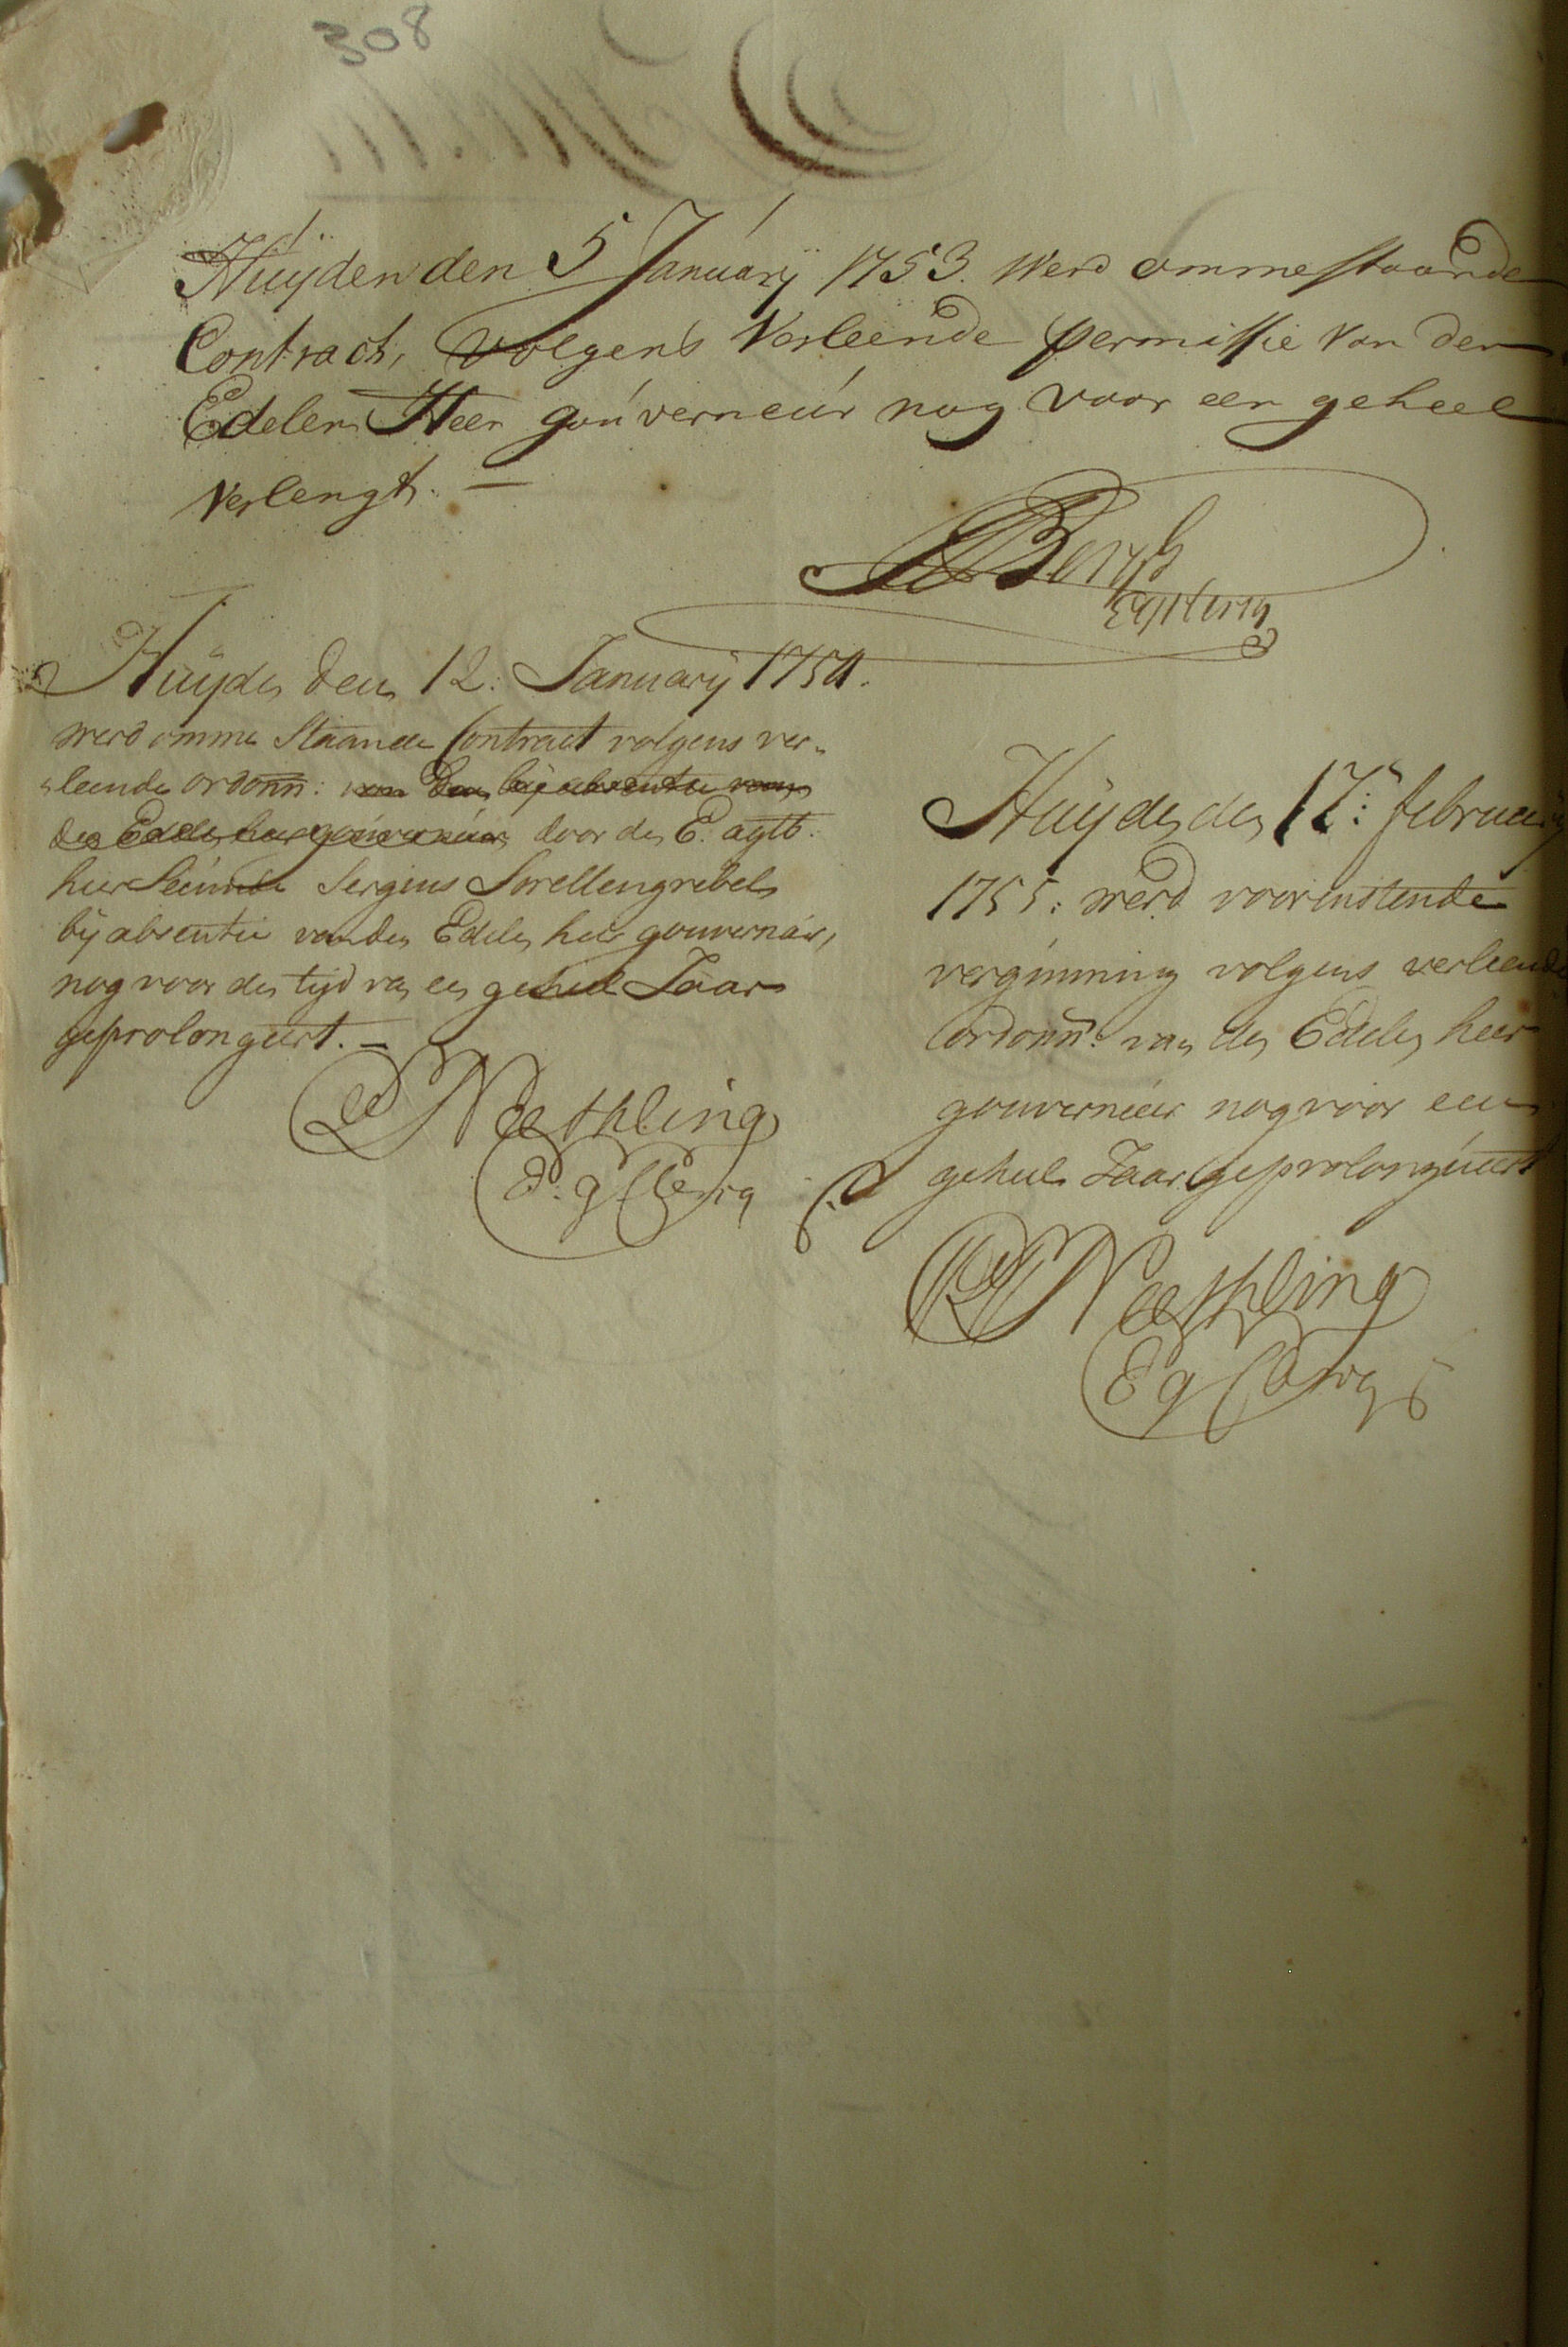 308
Huijden den 5 Januarij 1753. Werd ommestaande
Contract, volgens Verleende permissie van den
Edelen Heer gouverneur nog voor een geheel
Verlengt. —
Bergh
Huijden den 12: Januarij 1754.
werd omme staande Contract volgens ver-
leende ordonn: van den bij absentie van
den Edelen heer gouverneur door den E. agtb:
heer Secunde Sergius Swellengrebel
bij absentie van den Edelen heer gouverneur,
nog voor den tijd van een geheel Jaar
geprolongeert. —
Neethling
E. g Clercq
Huijden den 17: februarij
1755: werd voorenstende
vergunning volgens verleende
ordonn: van den Edelen heer
gouverneur nog voor een
geheel Jaar geprolongueert
Neethling
E g Clercq